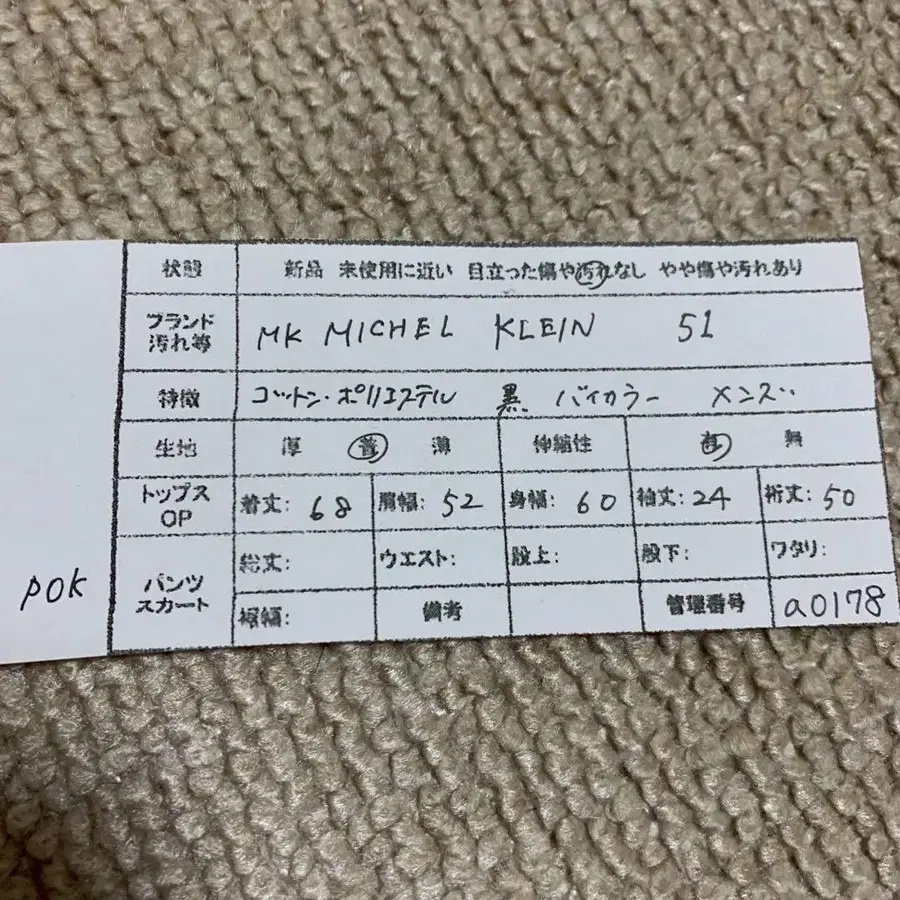 状態 新品 未使用に近い 目立った傷や汚れなし やや傷や汚れあり
ブランド
汚れ等 MK MICHEL KLEIN 51
特徴 コットン・ポリエステル 黒 バイカラー メンズ
生地 厚 普 薄 伸縮性 有 無
トップス
OP 着丈: 68 肩幅: 52 身幅: 60 袖丈: 24 裄丈: 50
パンツ
スカート 総丈: ウエスト: 股上: 股下: ワタリ:
裾幅: 備考 管理番号 a0178
POK